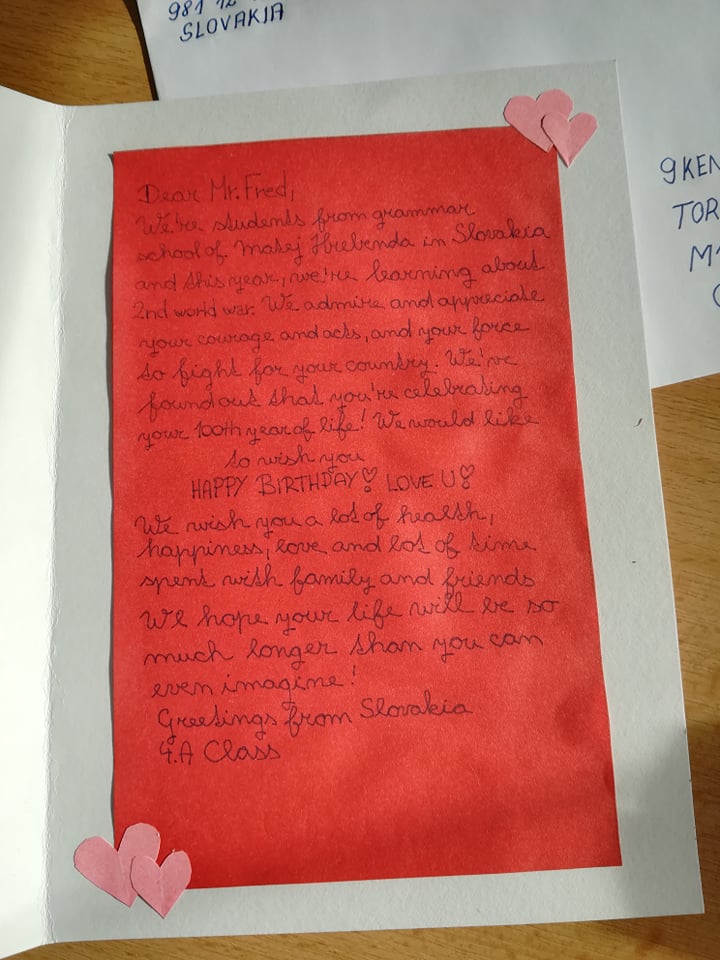 981 12
SLOVAKIA
9 KEN
TOR
M
Dear Mr. Fred,
We're students from grammar
school of Matej Hrebenda in Slovakia
and this year, we're learning about
2nd world war. We admire and appreciate
your courage and acts, and your force
to fight for your country. We've
found out that you're celebrating
your 100th year of life! We would like
to wish you
HAPPY BIRTHDAY! LOVE U!
We wish you a lot of health,
happiness, love and lot of time
spent with family and friends
We hope your life will be so
much longer than you can
even imagine!
Greetings from Slovakia
4.A Class